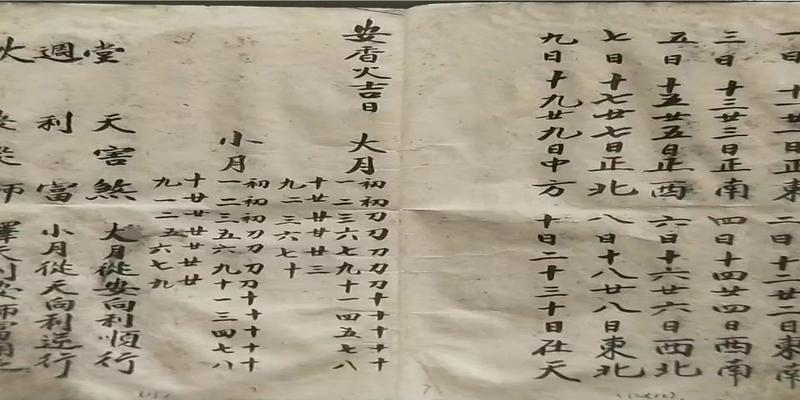 一日十一廿一日正東二日十二廿二日東南
三日十三廿三日正南四日十四廿四日西南
五日十五廿五日正西六日十六廿六日西北
七日十七廿七日正北八日十八廿八日東北
九日十九廿九日中方十日二十三十日在天
安香火吉日
大月初初刀刀刀刀刀十十十十十
一二三六七九十一四五七八
十廿廿廿廿三
九二三六七十
小月初初初刀刀刀刀十十十十十
一二三五六九十一三四七八
十廿廿廿廿廿
九一二五六七九
堂天害煞大月從安向利順行
週利富小月從天向利逆行
火師擇天利安師富用之